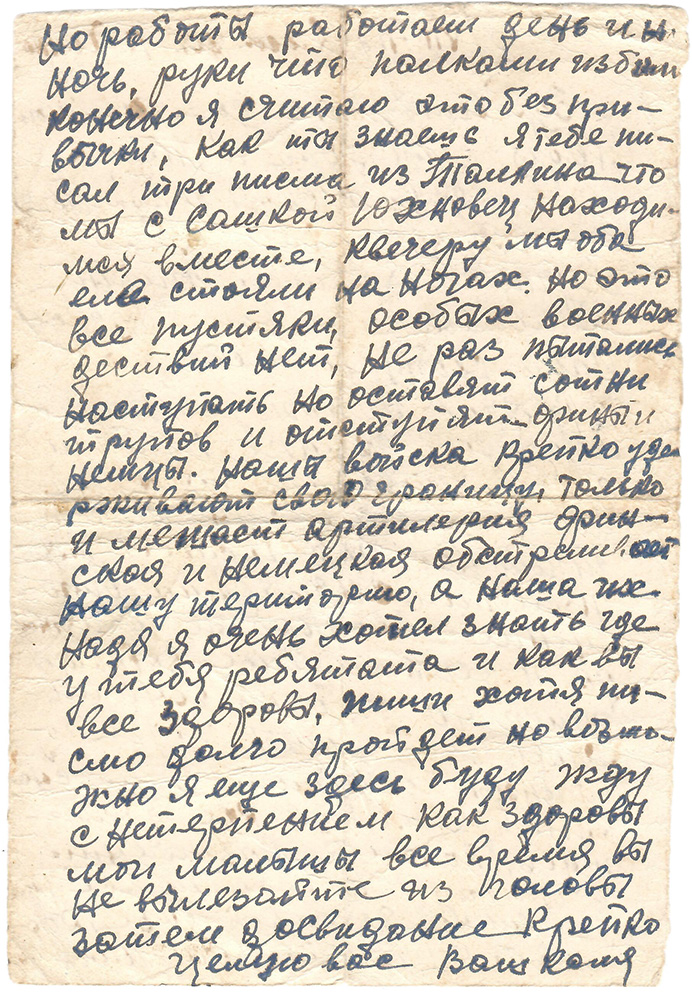 но работы работаем день и н
ночь, руки что палками избили
конечно я считаю это без при-
вычки, как ты знаеш я тебе пи-
сал три писма из Таллина что
мы с Сашкой Юхновец находи-
мся вместе, квечеру мы оба
еле стояли на ногах. но это
все пустяки, особых военных
дествий нет, не раз пытались
наступать но оставят сотни
трупов и отступят финны и
немцы. наши войска крепко уде
рживают свою границу, только
и мешает артилерия фин-
ская и немецкая обстреливает
нашу територию, а наша их.
Надя я очень хотел знать где
у тебя ребятата и как вы
все здоровы, пиши хотя пи-
смо долго пройдет но возмо-
жно я еще здесь буду жду
с нетерпением как здоровы
мои малыши все время вы
не вылезайте из головы
затем досвидание Крепко
целую вас Ваш Коля